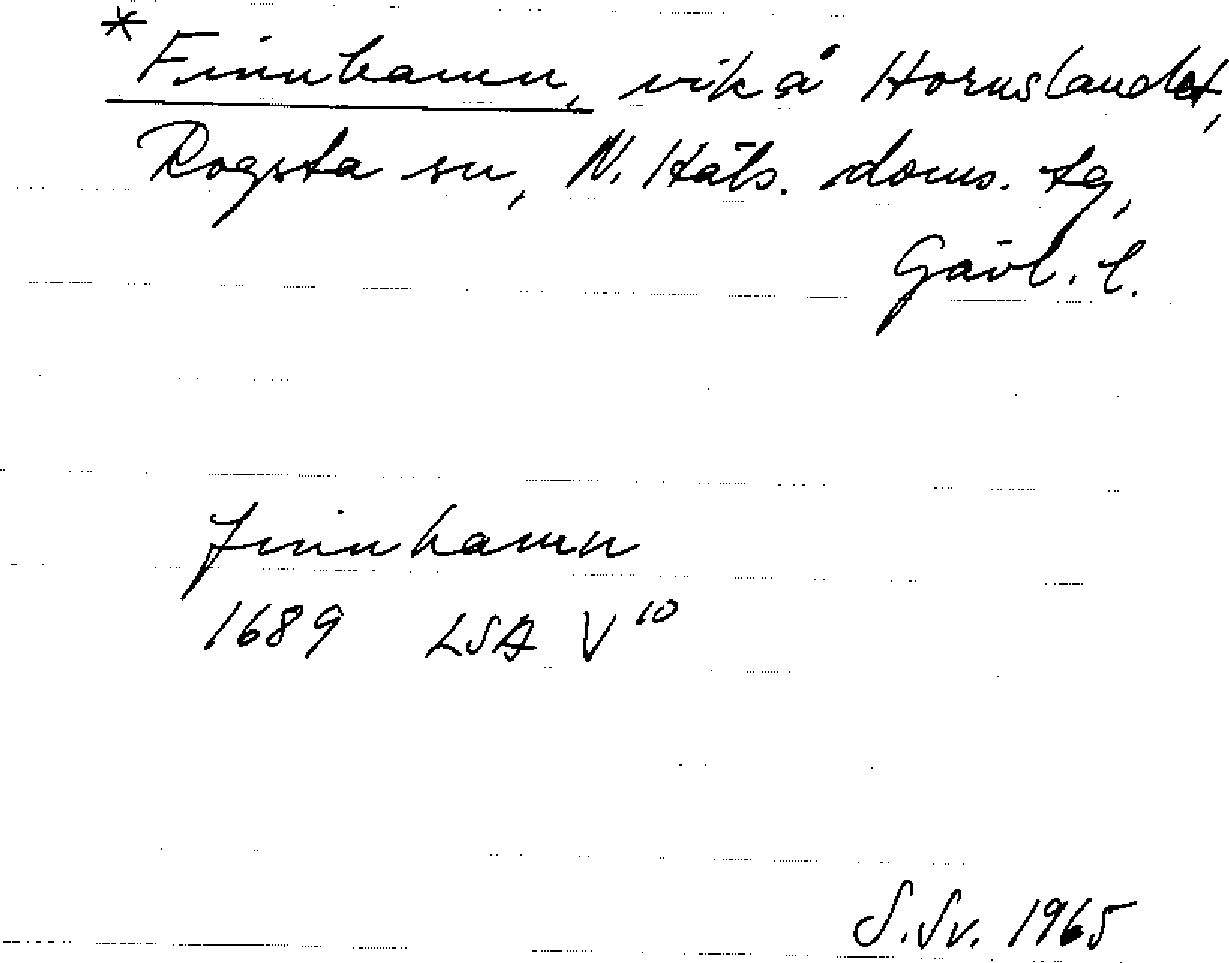 * Finnhamn, vik å Hornslandet,
Rogsta sn, N. Häls. doms. tg,
Gävl. l.
Finnhamn
1689 LSA V¹⁰
S.Sv. 1965